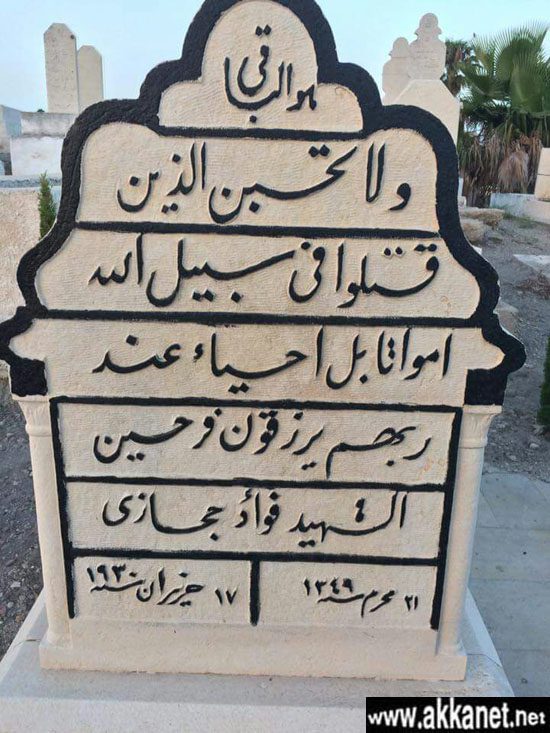 هو الباقي
ولا تحسبن الذين
قتلوا في سبيل الله
امواتا بل احياء عند
ربهم يرزقون فرحين
الشهيد فؤاد حجازي
٢١ محرم سنة ١٣٤٩
١٧ حزيران سنة ١٩٣٠
www.akkanet.net